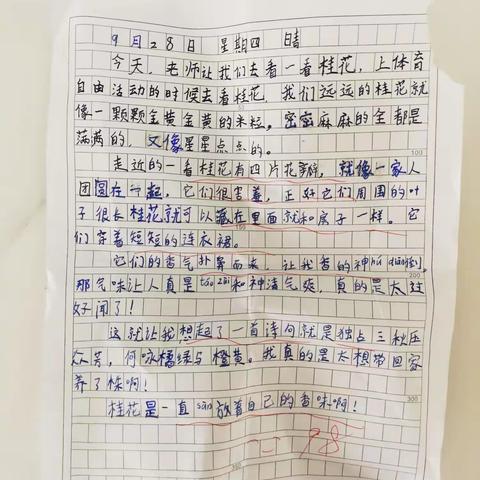 9月28日 星期四 晴
今天,老师让我们去看一看桂花,上体育
自由活动的时候去看桂花,我们远远的桂花就
像一颗颗金黄金黄的米粒,密密麻麻的全都是
满满的,又像星星点点的。
100
走近的一看桂花有四片花瓣,就像一家人
团圆在一起,它们很害羞,正好它们周围的叶
子很长桂花就可以藏在里面就和房子一样。它
们穿着短短的连衣裙。
它们的香气扑鼻而来,让我香的神hún
200
那气味让人真是táo zuì和神清气爽,真的是太过
好闻了!
这就让我想起了一首诗句就是独占三秋压
众芳,何咏橘绿与橙黄。我真的是太想带回家
养了株啊!
桂花是一直sàn放着自己的香味啊!
300
98